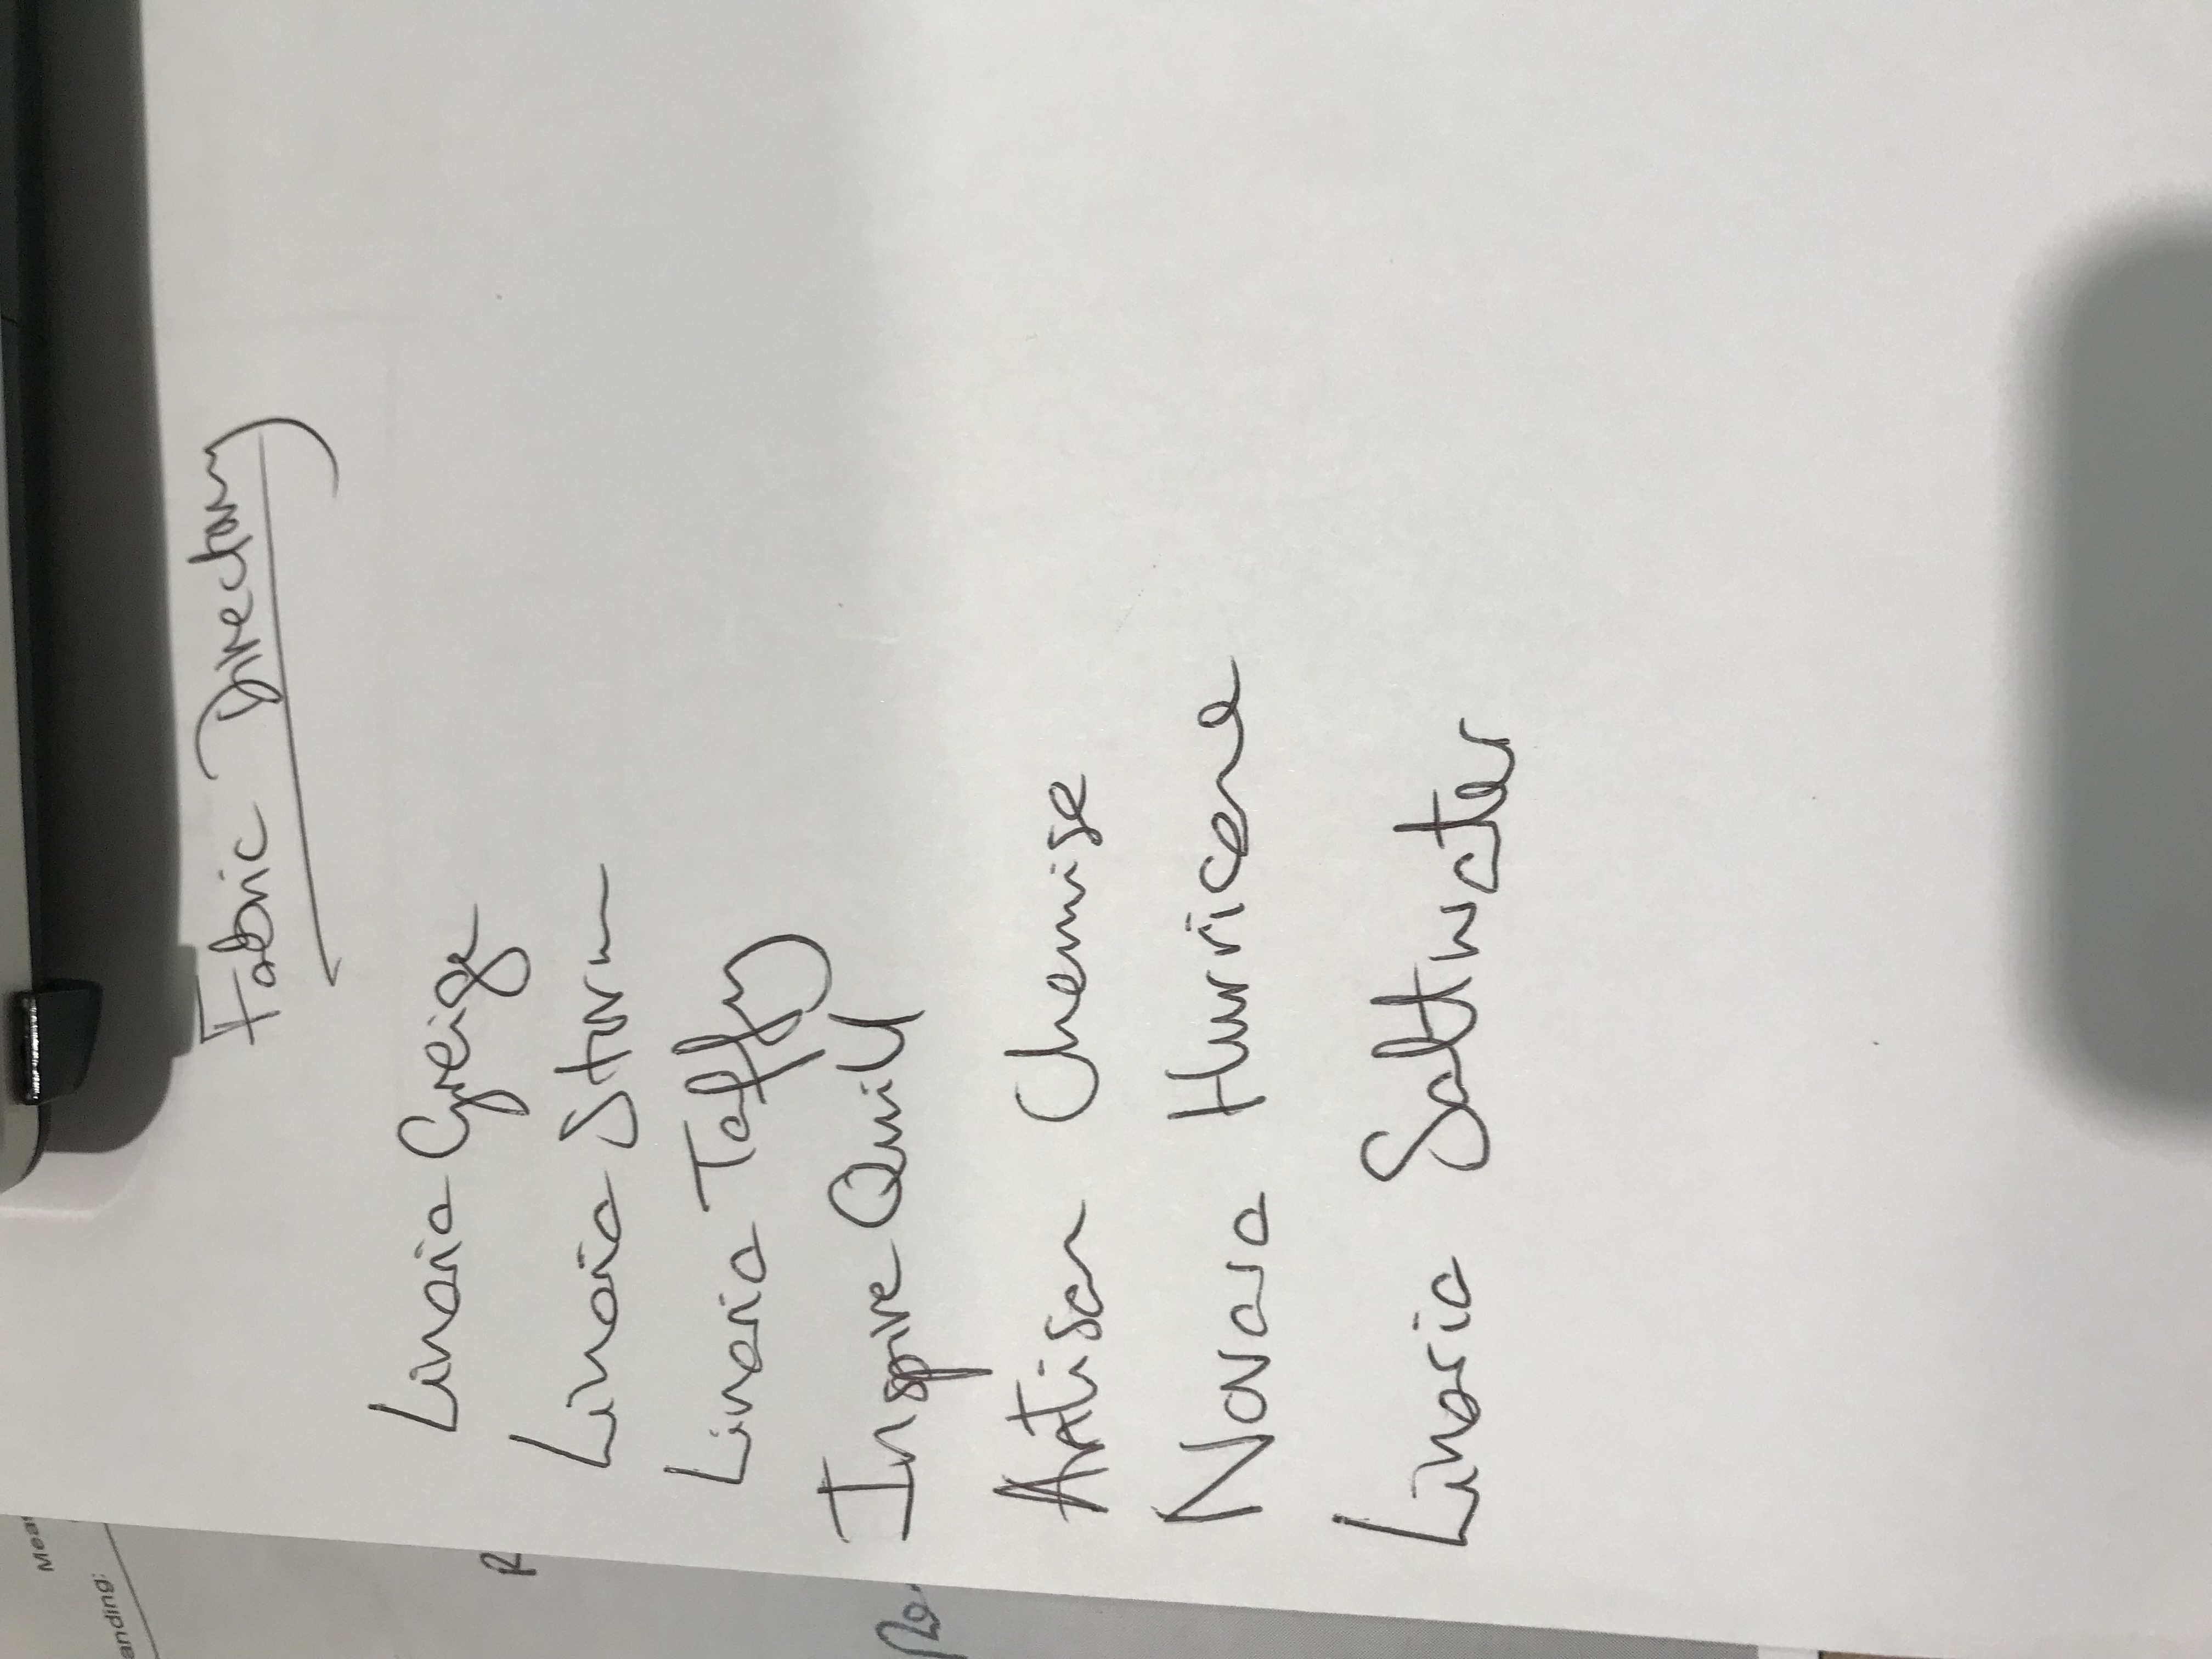 Fabric Directory
Linaria Greige
Linaria Storm
Linaria Taffy
Inspire Quill
Artisan Chemise
Navara Hurricane
Linaria Saltwater
Mea
anding:
R